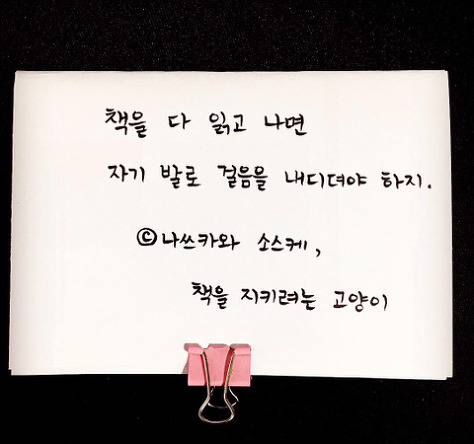 책을 다 읽고 나면
자기 발로 걸음을 내디뎌야 하지.
©나쓰카와 소스케,
책을 지키려는 고양이